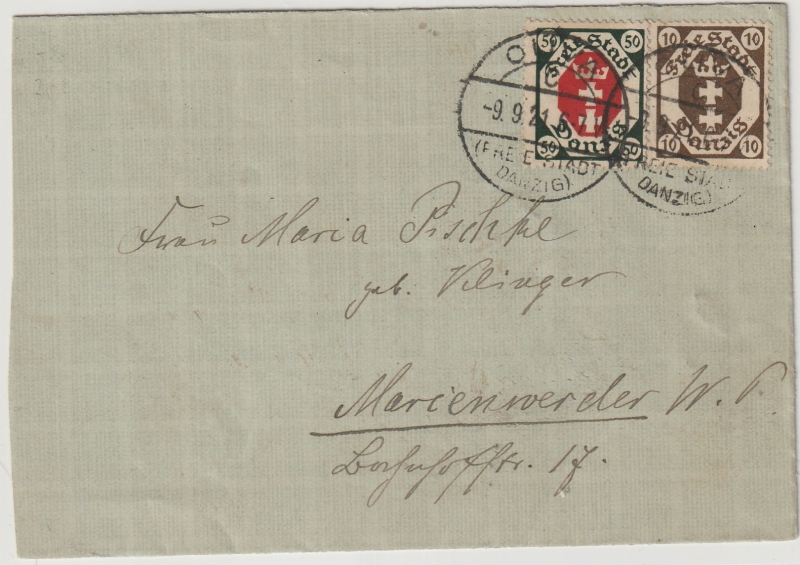 50 50
Freie Stadt
Danzig
50 50
10 10
Freie Stadt
Danzig
10 10
OLIVA
-9.9.21.6-7
(FREIE STADT
DANZIG)
FREIE STADT
DANZIG)
Frau Maria Pischke
geb. Klinger
Marienwerder W. P.
Bahnhofstr. 17.